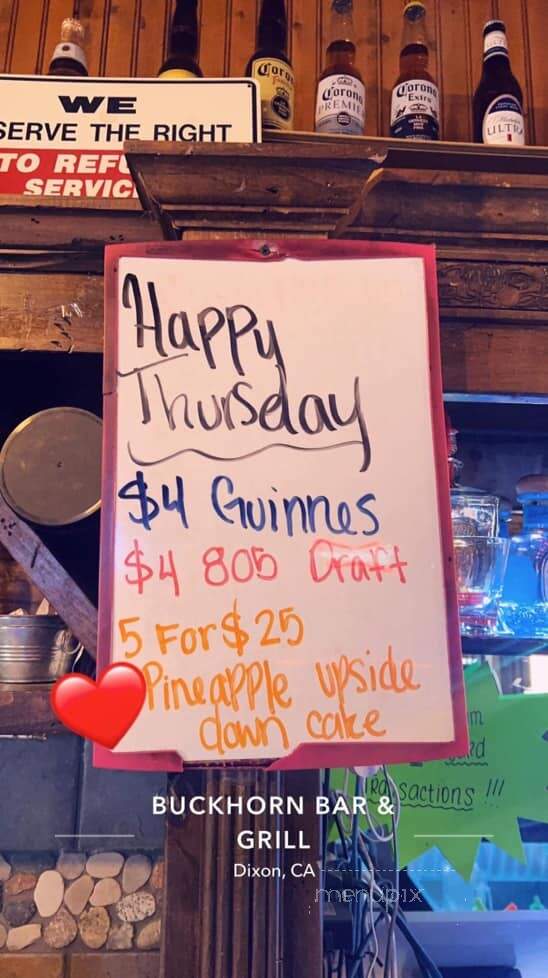 WE
SERVE THE RIGHT
TO REFU
SERVIC
Corona
Corona
PREMIER
Corona
Extra
ULTRA
Happy
Thursday
$4 Guinnes
$4 805 Draft
5 For $25
Pineapple upside
down cake
sactions !!!
BUCKHORN BAR &
GRILL
Dixon, CA
menupix